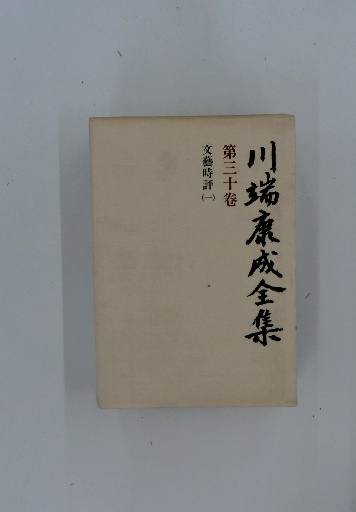 川端康成全集
第三十卷
文藝時評(一)